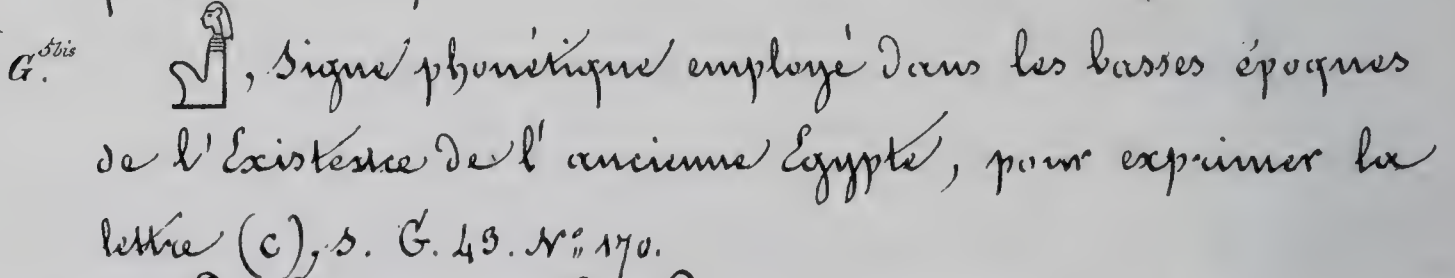 G.5bis , signe phonétique employé dans les basses époques
de l'Existence de l'ancienne Egypte, pour exprimer la
lettre (c), s. G. 43. N°: 170.